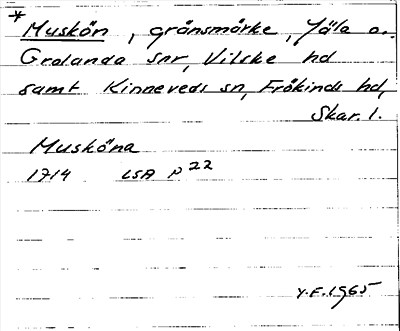 *
Muskön, gränsmärke, Jäla o.
Grolanda snr, Vilske hd
samt Kinneveds sn, Frökinds hd,
Skar. l.
Musköna
1714 LSA P 22
Y.F. 1965